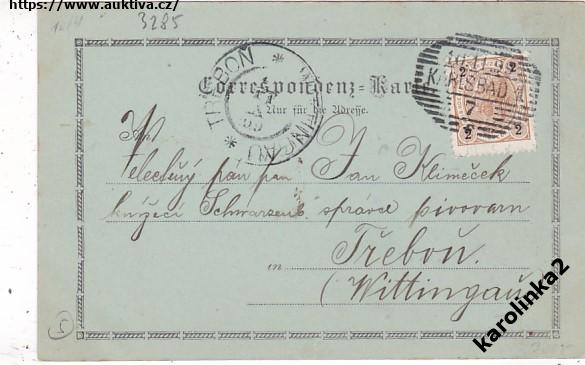 https://www.auktiva.cz/
3285
TŘEBOŇ
WITTINGAU
KARLSBAD 1
7
2 2
2 2
Correspondenz-Karte
Nur für die Adresse.
Velectěný pan pan Jan Klimeček
knížecí Schwarzenb. správce pivovaru
in Třeboň.
(Wittingau)
5
karolinka2